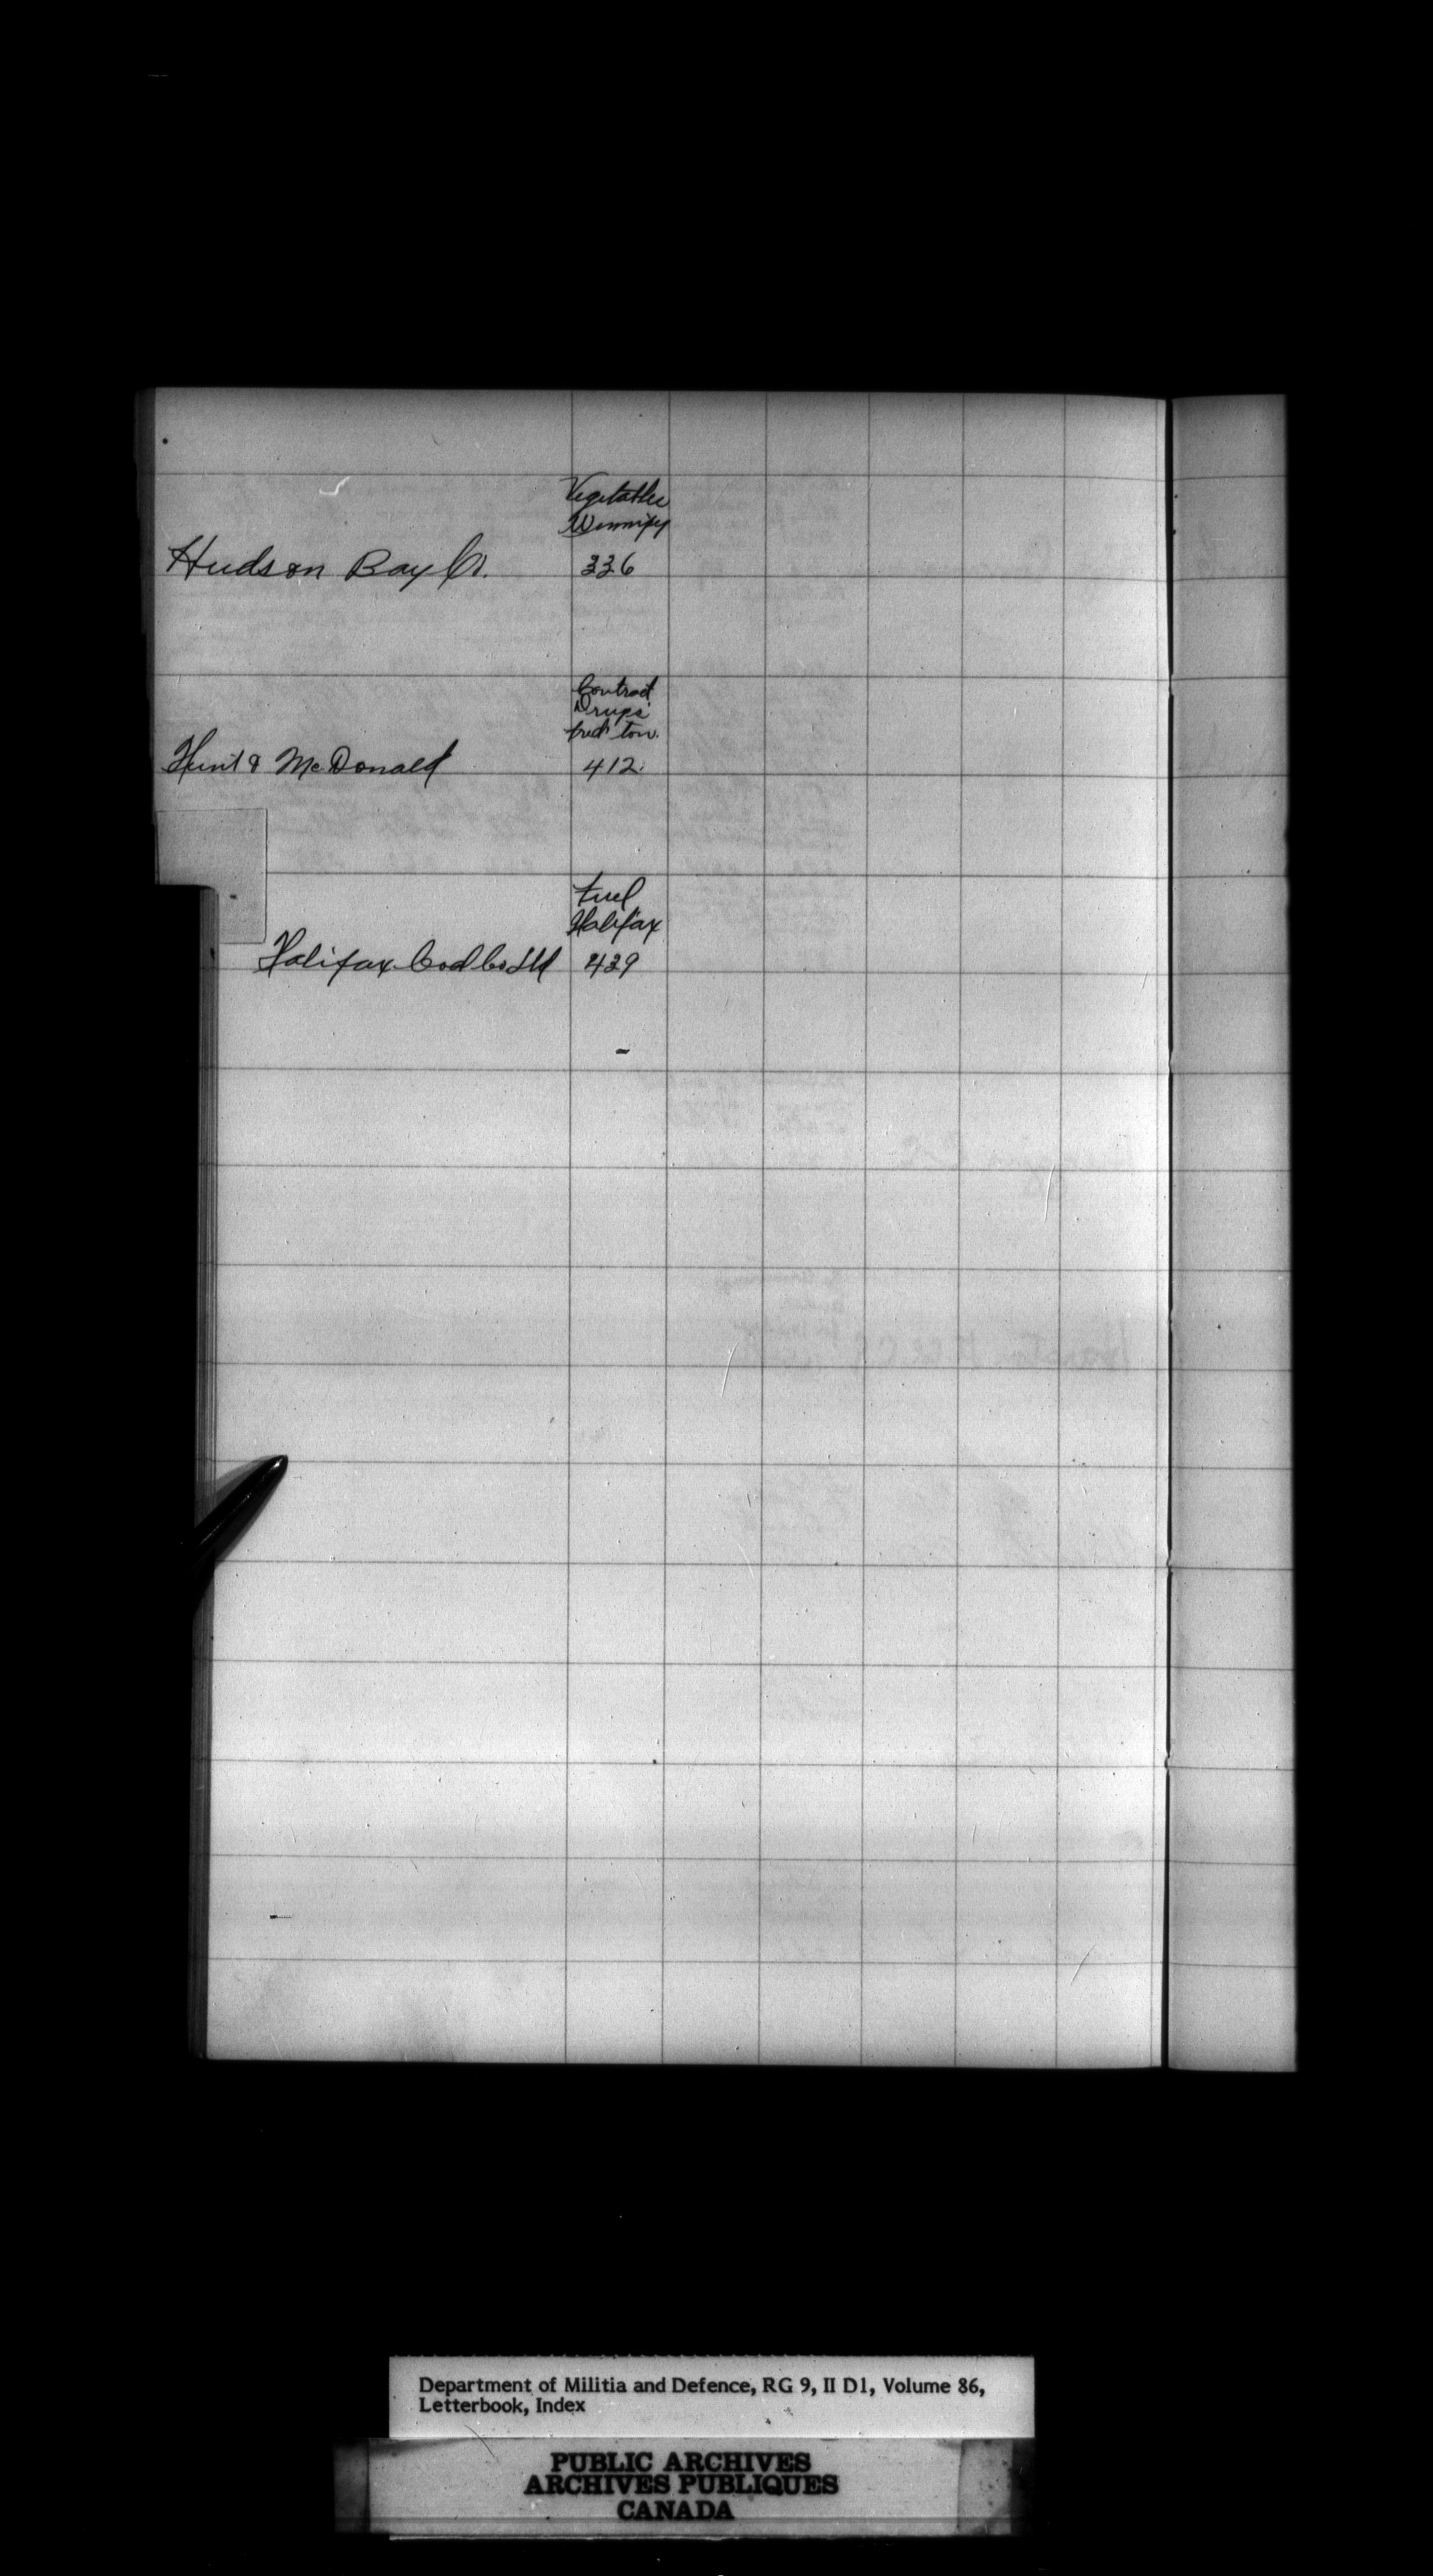 Vegetables
Winnipeg
Hudson Bay Co. 336
Contract
Drugs
Fred'ton.
Hunt & McDonald 412.
Fuel
Halifax
Halifax Coal Co Ltd 439
Department of Militia and Defence, RG 9, II D1, Volume 86,
Letterbook, Index
PUBLIC ARCHIVES
ARCHIVES PUBLIQUES
CANADA